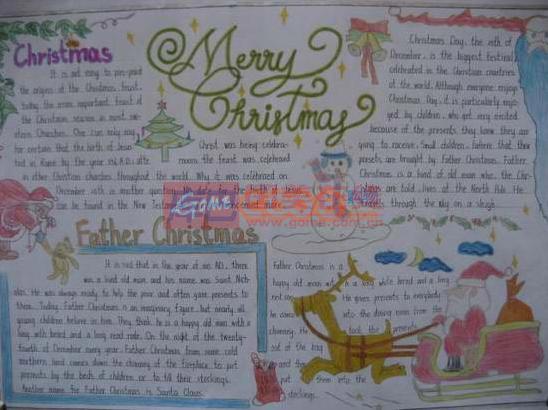 Christmas
It is not easy to pin-point
the origins of the Christmas feast,
today the most important feast of
the Christmas season in most wes-
tern Churches. One can only say
for certain that the birth of Jesus
in Rome by the year A.D.; after
in other Christian churches throughout the world. Why it was celebrated on
December 25th is another question birth of Jesus
can be found in the New Testament
Merry
Christmas
Christ was being celebra-
the feast was celebrated
Christmas Day, the 25th of
December, is the biggest festival
celebrated in the Christian countries
of the world. Although everyone enjoys
Christmas Day, it is particularly enjo-
yed by children, who get very excited
because of the presents they know they are
going to receive. Small children believe that their
presents are brought by Father Christmas. Father
Christmas is a kind of old man who, the Chi-
are told, lives at the North Pole. He
through the sky on a sleigh
www.gome.com.cn
Father Christmas
It is said that in the year of A.D., there
was a kind old man and his name was Saint Nich-
olas. He was always ready to help the poor and often gave presents to
them. Today, Father Christmas is an imaginary figure, but nearly all
young children believe in him. They think he is a happy old man with a
long white beard and a long red robe. On the night of the twenty-
fourth of December every year, Father Christmas from some cold
northern land comes down the chimney of the fireplace to put
presents by the beds of children or to fill their stockings.
Another name for Father Christmas is Santa Claus.
Father Christmas is a
happy old man with a long white beard and a long
red He gives presents to everybody
he comes into the dining room from the
chimney. He took the presents
out of the bag
and put them into the
stockings.